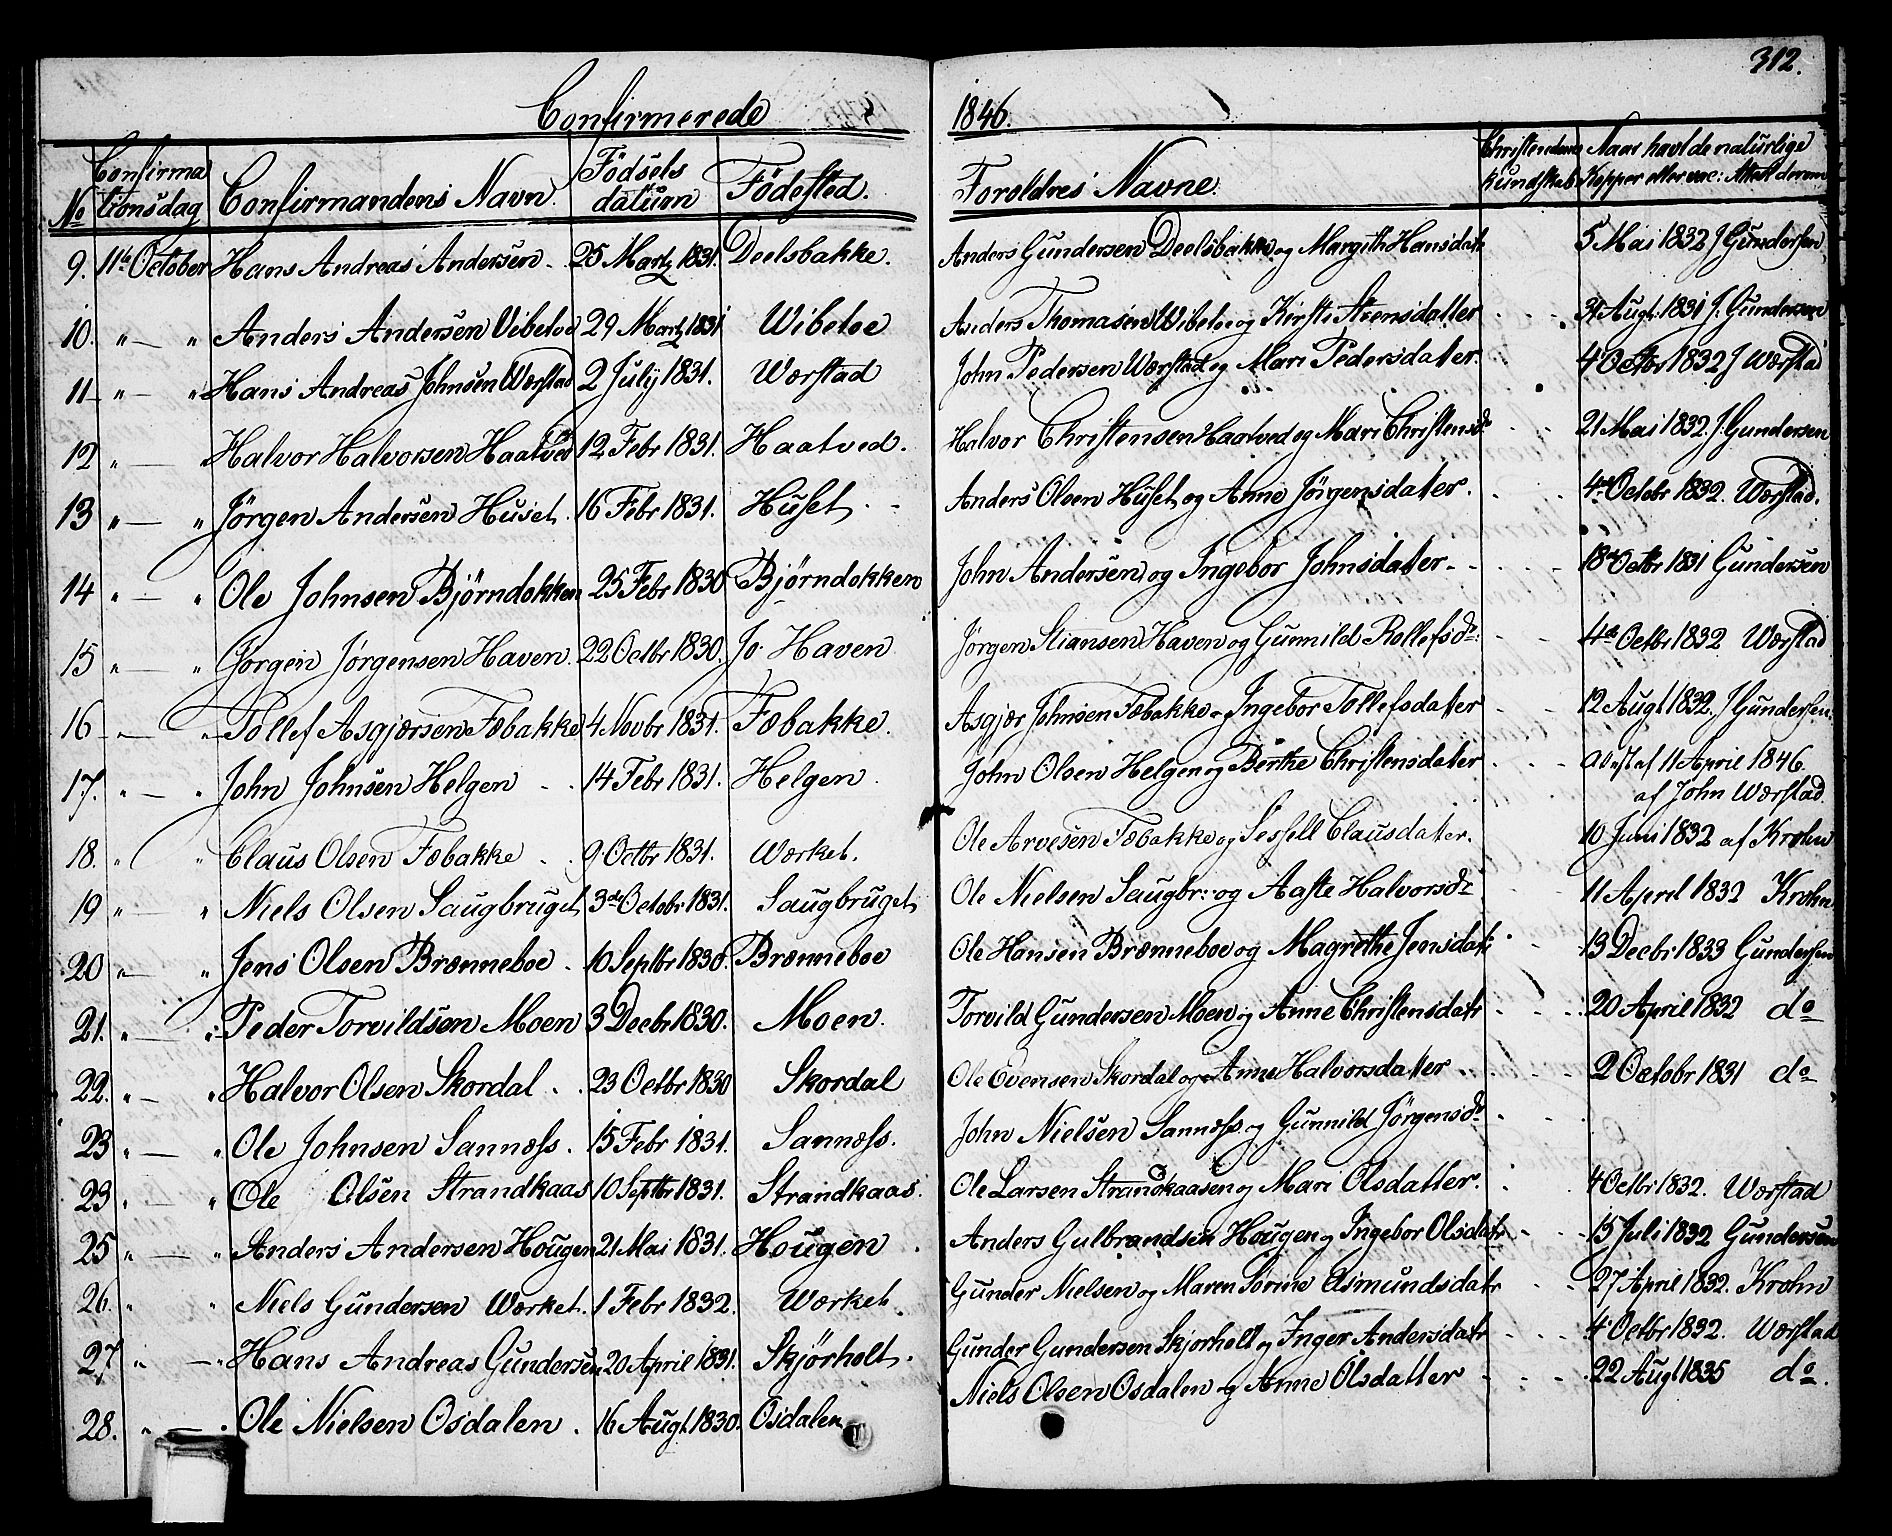 312.
Confirmerede 1846.
No Confirmationsdag Confirmandens Navn. Födsels datum Födested. Foroldres Navne. Christendoms kundskab Naar havt de naturlige Kopper eller vac: Attest derom
9. 11te October Hans Andreas Andersen. 25 Martz 1831. Deelsbakke. Anders Gundersen Deelsbakke og Margith Hansdatr 5 Mai 1832 J Gundersen
10. " — " Anders Andersen Vibetoe 29 Martz 1831 Wibetoe Anders Thomasen Wibetoe og Kirsti Stensdatter 31 Augt. 1831 J. Gundersen
11 " — " Hans Andreas Johnsen Wærstad 2 Julij 1831. Wærstad John Pedersen Wærstad og Mari Pedersdater. 4 Octbr 1832 J Wærstad
12 " — " Halvor Halvorsen Haatved 12 Febr 1831. Haatved. Halvor Christensen Haatved og Mari Christensdr 21 Mai 1832 J. Gundersen
13 " — " Jörgen Andersen Huset. 16 Febr 1831. Huset. Anders Olsen Huset og Anne Jörgensdater. 4de Octobr 1832. Wærstad.
14 " — " Ole Johnsen Bjørndokken 25 Febr 1830 Bjørndokken John Andersen og Ingebor Johnsdater 18de Octbr 1831 Gundersen
15 " — " Jørgen Jørgensen Haven. 22 Octbr 1830. Jo. Haven Jørgen Stiansen Haven og Gunnild Rollefsdr: 4de Octbr 1832 Wærstad
16 " — " Tollef Asgjærsen Fæbakke 4 Novbr 1831. Fæbakke. Asgjær Johnsen Fæbakke og Ingebor Tollefsdater 12 Augt 1832. J Gundersen.
17. " — " John Johnsen Helgen 14 Febr 1831. Helgen. John Olsen Helgen og Birthe Christensdater Attest af 11 April 1846.
af John Wærstad
18. " " Claus Olsen Fæbakke 9 Octbr 1831. Wærket. Ole Arvesen Fæbakke og Sessell Clausdater. 10 Juni 1832 af Krohn
19 " — " Niels Olsen Saugbruget 3de Octobr 1831. Saugbruget Ole Nielsen Saugbr: og Aaste Halvorsdr 11 April 1832 Krohn
20 " — " Jens Olsen Brænneboe. 10 Septbr 1830. Brænneboe Ole Hansen Brænneboe og Magrethe Jensdatr 13 Decbr 1833 Gundersen
21. " — " Peder Torvildsen Moen 3 Decbr 1830. Moen. Torvild Gundersen Moen og Anne Christensdatr 20 April 1832 do
22. " — " Halvor Olsen Skordal 23 Octbr 1830 Skordal Ole Evensen Skordal og Anne Halvorsdatter 2 Octobr 1831 do
23 " — " Ole Johnsen Sannæss. 15 Febr 1831. Sannæss. John Nielsen Sannæss og Gunnild Jörgensdr
23 " " Ole Olsen Strandkaas 10 Septbr 1831. Strandkaas. Ole Larsen Strandkaasen og Mari Olsdatter. 4 Octbr 1832. Wærstad
25 " — " Anders Andersen Hougen 21 Mai 1831. Hougen Anders Gulbrandsen Hougen og Ingebor Olsdatr 15 Juli 1832 Gundersen
26. " " Niels Gundersen Wærket. 1 Febr 1832. Wærket Gunder Nielsen og Maren Sörine Asmundsdatr 27 April 1832. Krohn
27 " — " Hans Andreas Gundersen 20 April 1831. Skjørholt. Gunder Gundersen Skjørholt og Inger Andersdatr 4 Octbr 1832. Wærstad
28. " — Ole Nielsen Osdalen. 16 Augt. 1830. Osdalen Niels Olsen Osdalen og Anne Olsdatter 22 Augt 1835 do.